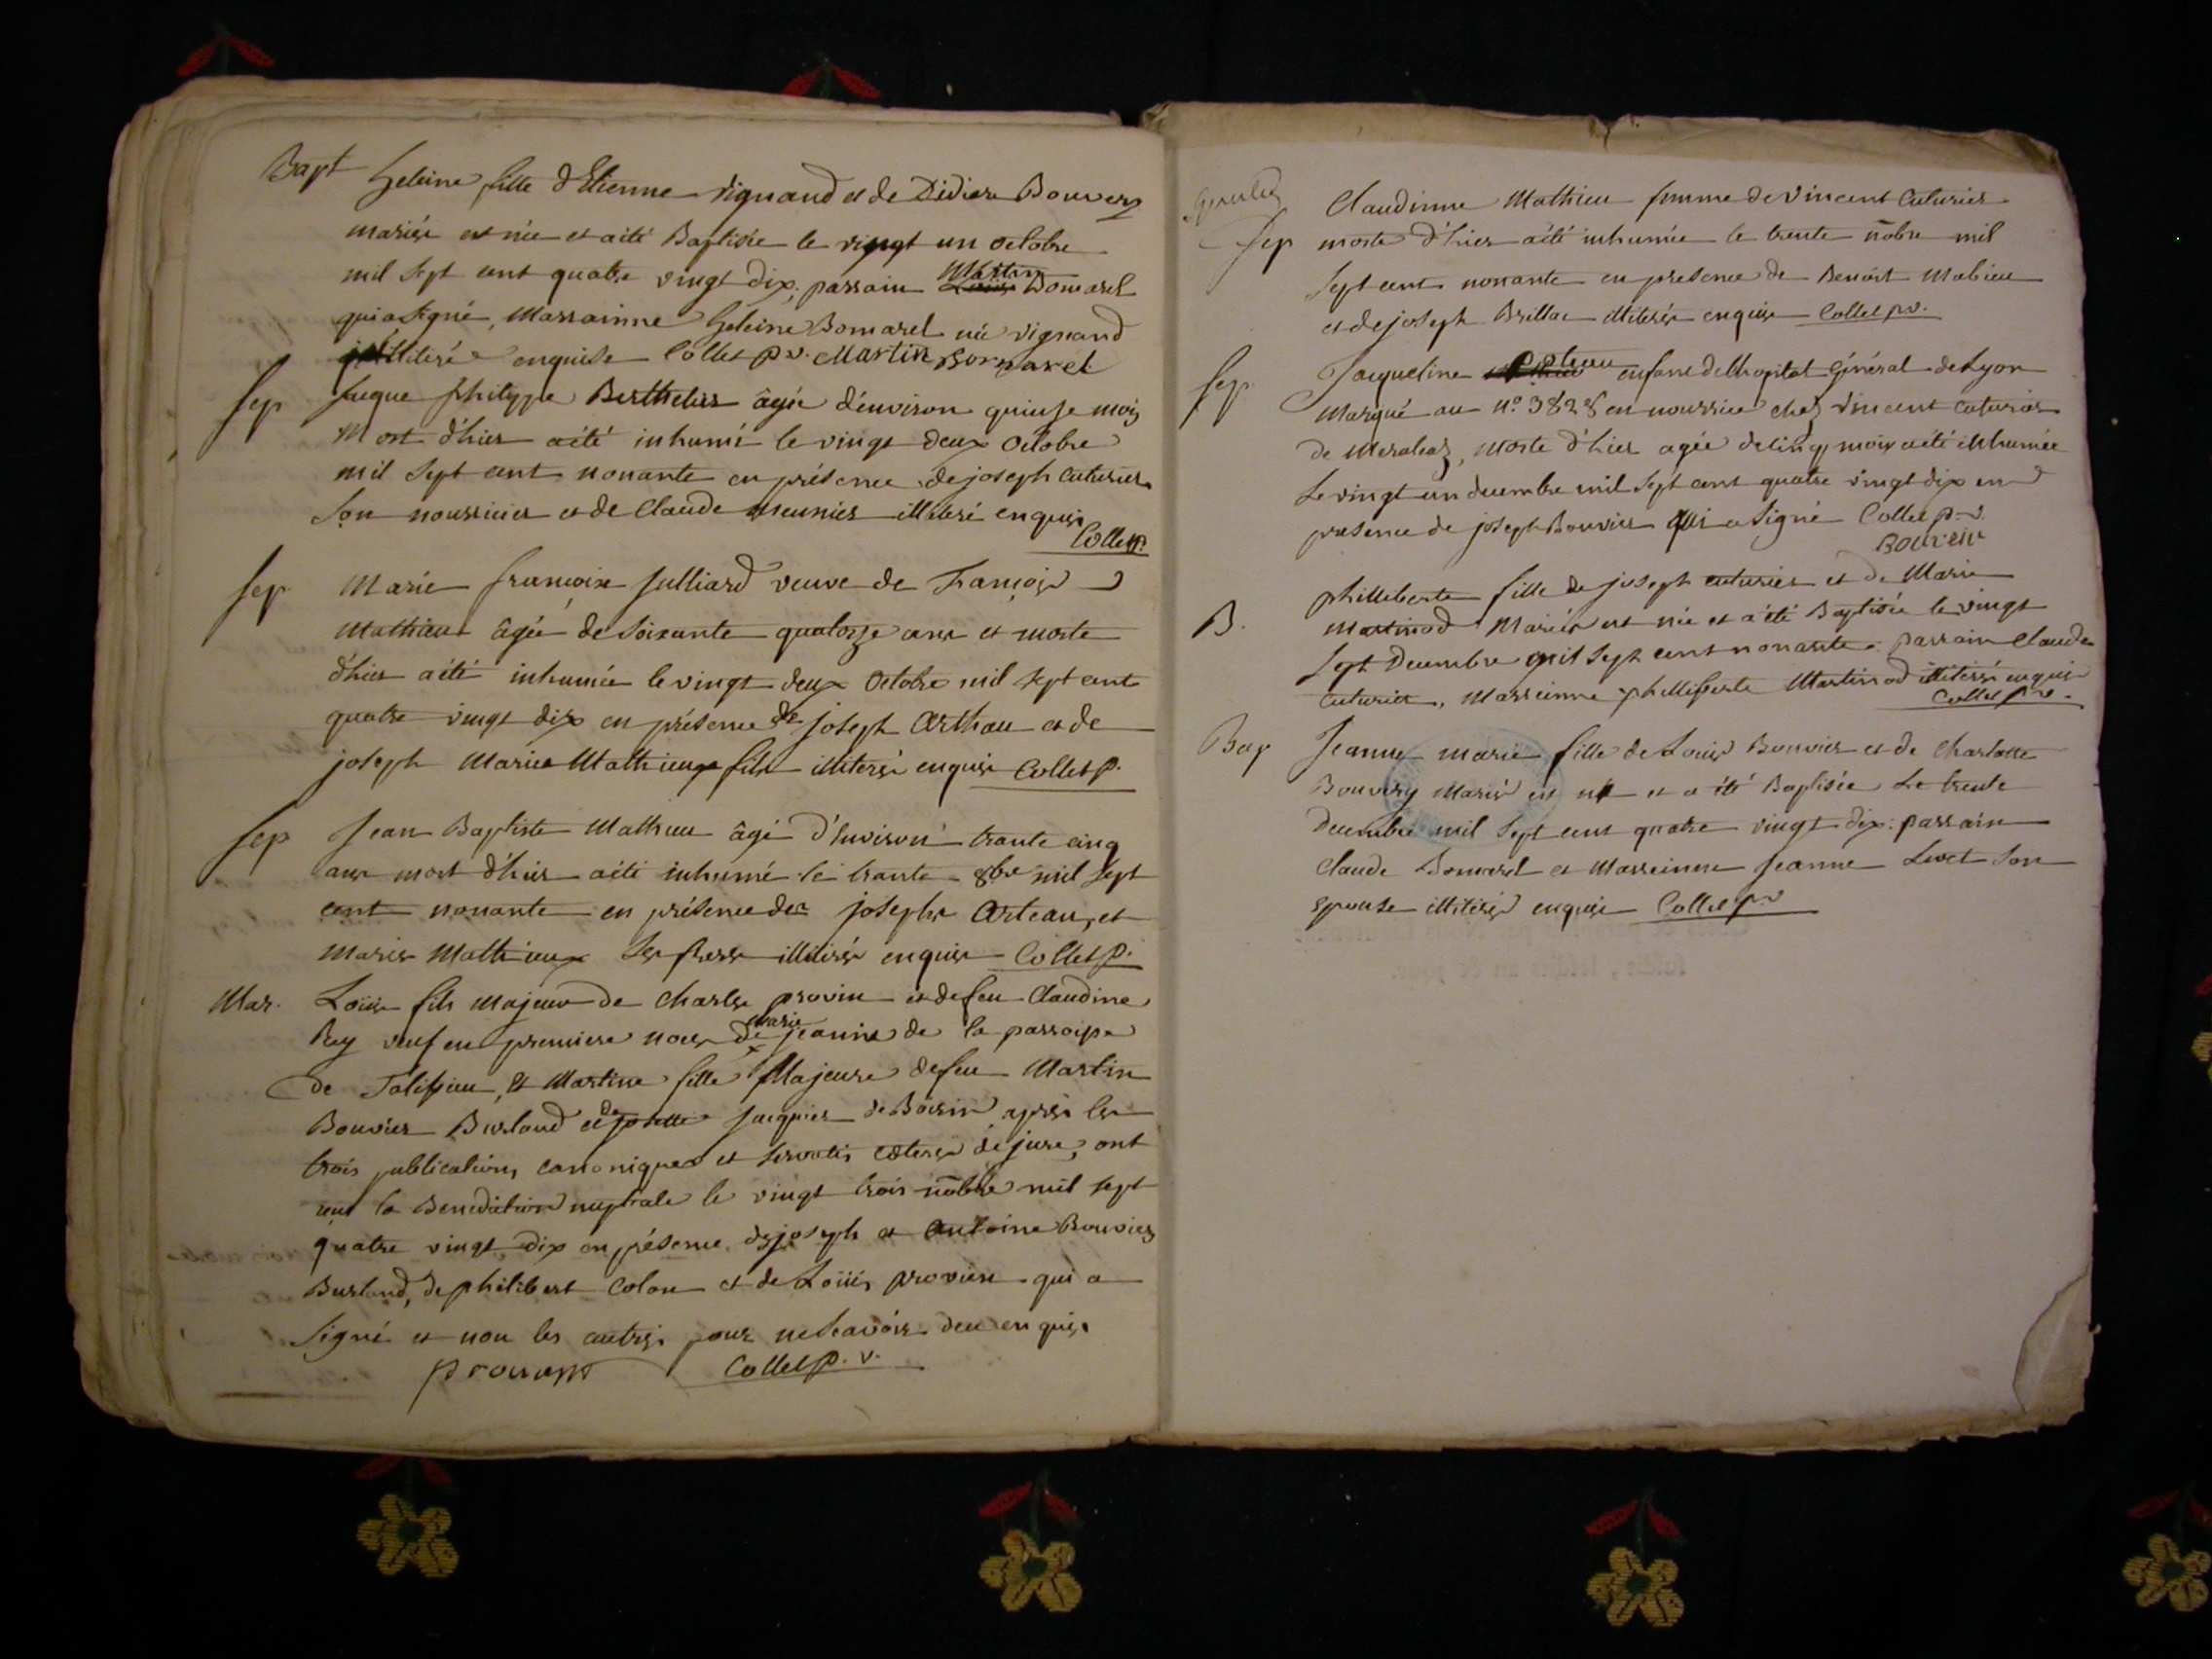 Bapt Heleine fille d'Etienne vignand et de Didiere Bouvery
mariés est née et a été Baptisée le vingt un octobre
mil sept cent quatre vingt dix, parrain Martin Bomarel
qui a signé, Marrainne heleine Bomarel née vignand
illiteré enquise Collet p. v. Martin Bomarel
sep Jaque philippe Berthelier âgé d'environ quinse mois
Mort d'hier a été inhumé le vingt deux octobre
mil sept cent nonante en présence de joseph cuturier
son nourricier et de Claude meunier illiteré enquis
Collet p.
sep Marie françoise Julliard veuve de François
Mathieu âgée de soixante quatorze ans et morte
d'hier a été inhumée le vingt deux octobre mil sept cent
quatre vingt dix en présence de joseph Arthau et de
joseph Marie Mathieux fils illiterés enquis Collet p.
sep Jean Baptiste Mathieu âgé d'environ trante cinq
ans mort d'hier a été inhumé le trante 8bre mil sept
cent nonante en présence des josephs Arteau, et
Marie Mathieux ses freres illiterés enquis Collet p.
Mar. Loüis fils Majeur de charles provin et de feu Claudine
Rey veuf en premiere noces de marie jeanne de la parroisse
de Talissieu, et Martine fille Majeure de feu Martin
Bouvier Burland et de josette Jacquier de Boisin après les
trois publications canoniques et servatis cæteris de jure, ont
reçu la Benediction nuptiale le vingt trois nobre mil sept
quatre vingt dix en présence de joseph et Antoine Bouvier
Burland, de philibert Colon et de Loüis provin qui a
signé et non les autres pour ne scavoir deu enquis
Collet p. v.
Claudinne Mathieu femme de vincent Cuturier
sep morte d'hier a été inhumée le trente nobre mil
sept cent nonante en presence de Benoit Mabieu
et de joseph Brillat illiterés enquis Collet p. v.
sep Jacqueline enfant de l'hopital général de Lyon
Marqué au n.o 3828 en nourrice chez vincent cuturier
de Meraleaz, morte d'hier agée de cinq mois a été inhumée
Le vingt un decembre mil sept cent quatre vingt dix en
presence de joseph Bouvier qui a signé Collet p. v.
Bouvier
B. philleberte fille de joseph cuturier et de Marie
Martinod Mariés est née et a été Baptisée le vingt
sept Decembre mil sept cent nonante: parrain Claude
cuturier, Marrienne philleberte Martinod illiterés enquis
Collet p. v.
Bap Jeanne marie fille de Louis Bouvier et de charlotte
Bouvery Mariés est née et a été Baptisée Le trente
decembre mil sept cent quatre vingt dix: parrain
Claude Bomarel et Marreinne Jeanne Livet son
epouse illiterés enquis Collet p v